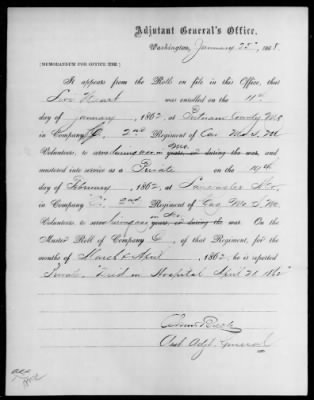 Adjutant General's Office,
Washington, January 22d, 1868.
[MEMORANDUM FOR OFFICE USE.]
It appears from the Rolls on file in this Office, that
was enrolled on the 11th
day of January, 1862, at Putnam County Mo
in Company C, 2nd Regiment of Cav. Mo S. M
Volunteers, to serve during war in Mo. years, or during the war, and
mustered into service as a Private on the 10th
day of February, 1862, at Lancaster Mo.
in Company C, 2nd Regiment of Cav Mo S. M.
Volunteers, to serve during war in Mo years, or during the war. On the
Muster Roll of Company C, of that Regiment, for the
months of March & April, 1862, he is reported
Private "Died in Hospital April 20 1862"
Asst. Adjt. General